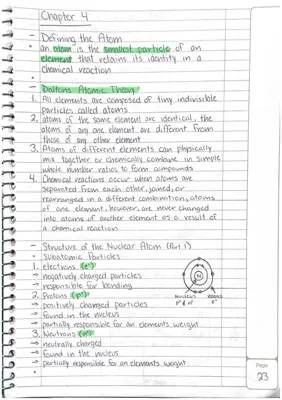 Chapter 4
- Defining the Atom
• an atom is the smallest particle of an
element that retains its identity in a
chemical reaction
•
- Daltons Atomic Theory
1. All elements are composed of tiny indivisible
particles called atoms
2. atoms of the same element are identical, the
atoms of any one element are different from
those of any other element
3. Atoms of different elements can physically
mix together or chemically combine in simple
whole number ratios to form compounds
4. Chemical reactions occur when atoms are
separated from each other, joined, or
rearranged in a different combination, atoms
of one element, however, are never changed
into atoms of another element as a result of
a chemical reaction
- Structure of the Nuclear Atom (Part 1)
• Subatomic Particles
1. electrons (e⁻)
→ negatively charged particles
→ responsible for bonding
2. Protons (p⁺)
→ positively charged particles
→ found in the nucleus
→ partially responsible for an elements weight
3. Neutrons (n⁰)
→ neutrally charged
→ found in the nucleus
→ partially responsible for an elements weight
•
N
nucleus
Page
23